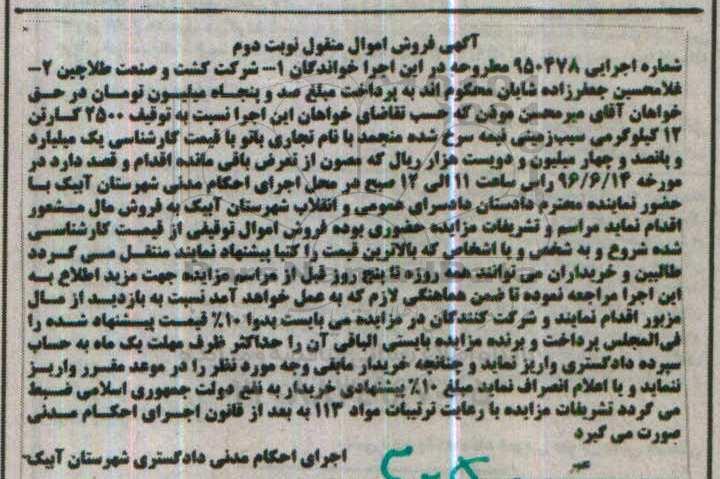 آگهی فروش اموال منقول نوبت دوم
شماره اجرایی ۹۵۰۴۷۸ مطروحه در این اجرا خواندگان ۱- شرکت کشت و صنعت طلاچین ۲-
غلامحسین جعفرزاده شایان محکوم اند به پرداخت مبلغ صد و پنجاه میلیون تومان در حق
خواهان آقای میرمحسن موقن که حسب تقاضای خواهان این اجرا نسبت به توقیف ۲۵۰۰ کارتن
۱۲ کیلوگرمی سیب‌زمینی نیمه سرخ شده منجمد با نام تجاری بانو با قیمت کارشناسی یک میلیارد
و پانصد و چهار میلیون و دویست هزار ریال که مصون از تعرض باقی مانده اقدام و قصد دارد در
مورخه ۹۶/۶/۱۴ راس ساعت ۱۱ الی ۱۲ صبح در محل اجرای احکام مدنی شهرستان آبیک با
حضور نماینده محترم دادستان دادسرای عمومی و انقلاب شهرستان آبیک به فروش مال مشعور
اقدام نماید مراسم و تشریفات مزایده حضوری بوده فروش اموال توقیفی از قیمت کارشناسی
شده شروع و به شخص و یا اشخاصی که بالاترین قیمت را کتبا پیشنهاد نمایند منتقل می گردد
طالبین و خریداران می توانند همه روزه تا پنج روز قبل از مراسم مزایده جهت مزید اطلاع به
این اجرا مراجعه نموده تا ضمن هماهنگی لازم که به عمل خواهد آمد نسبت به بازدید از مال
مزبور اقدام نمایند و شرکت کنندگان در مزایده می بایست بدوا ۱۰٪ قیمت پیشنهاد شده را
فی‌المجلس پرداخت و برنده مزایده بایستی الباقی آن را حداکثر ظرف مهلت یک ماه به حساب
سپرده دادگستری واریز نماید و چنانچه خریدار مابقی وجه مورد نظر را در موعد مقرر واریز
ننماید و یا اعلام انصراف نماید مبلغ ۱۰٪ پیشنهادی خریدار به نفع دولت جمهوری اسلامی ضبط
می گردد تشریفات مزایده با رعایت ترتیبات مواد ۱۱۳ به بعد از قانون اجرای احکام مدنی
صورت می گیرد
اجرای احکام مدنی دادگستری شهرستان آبیک